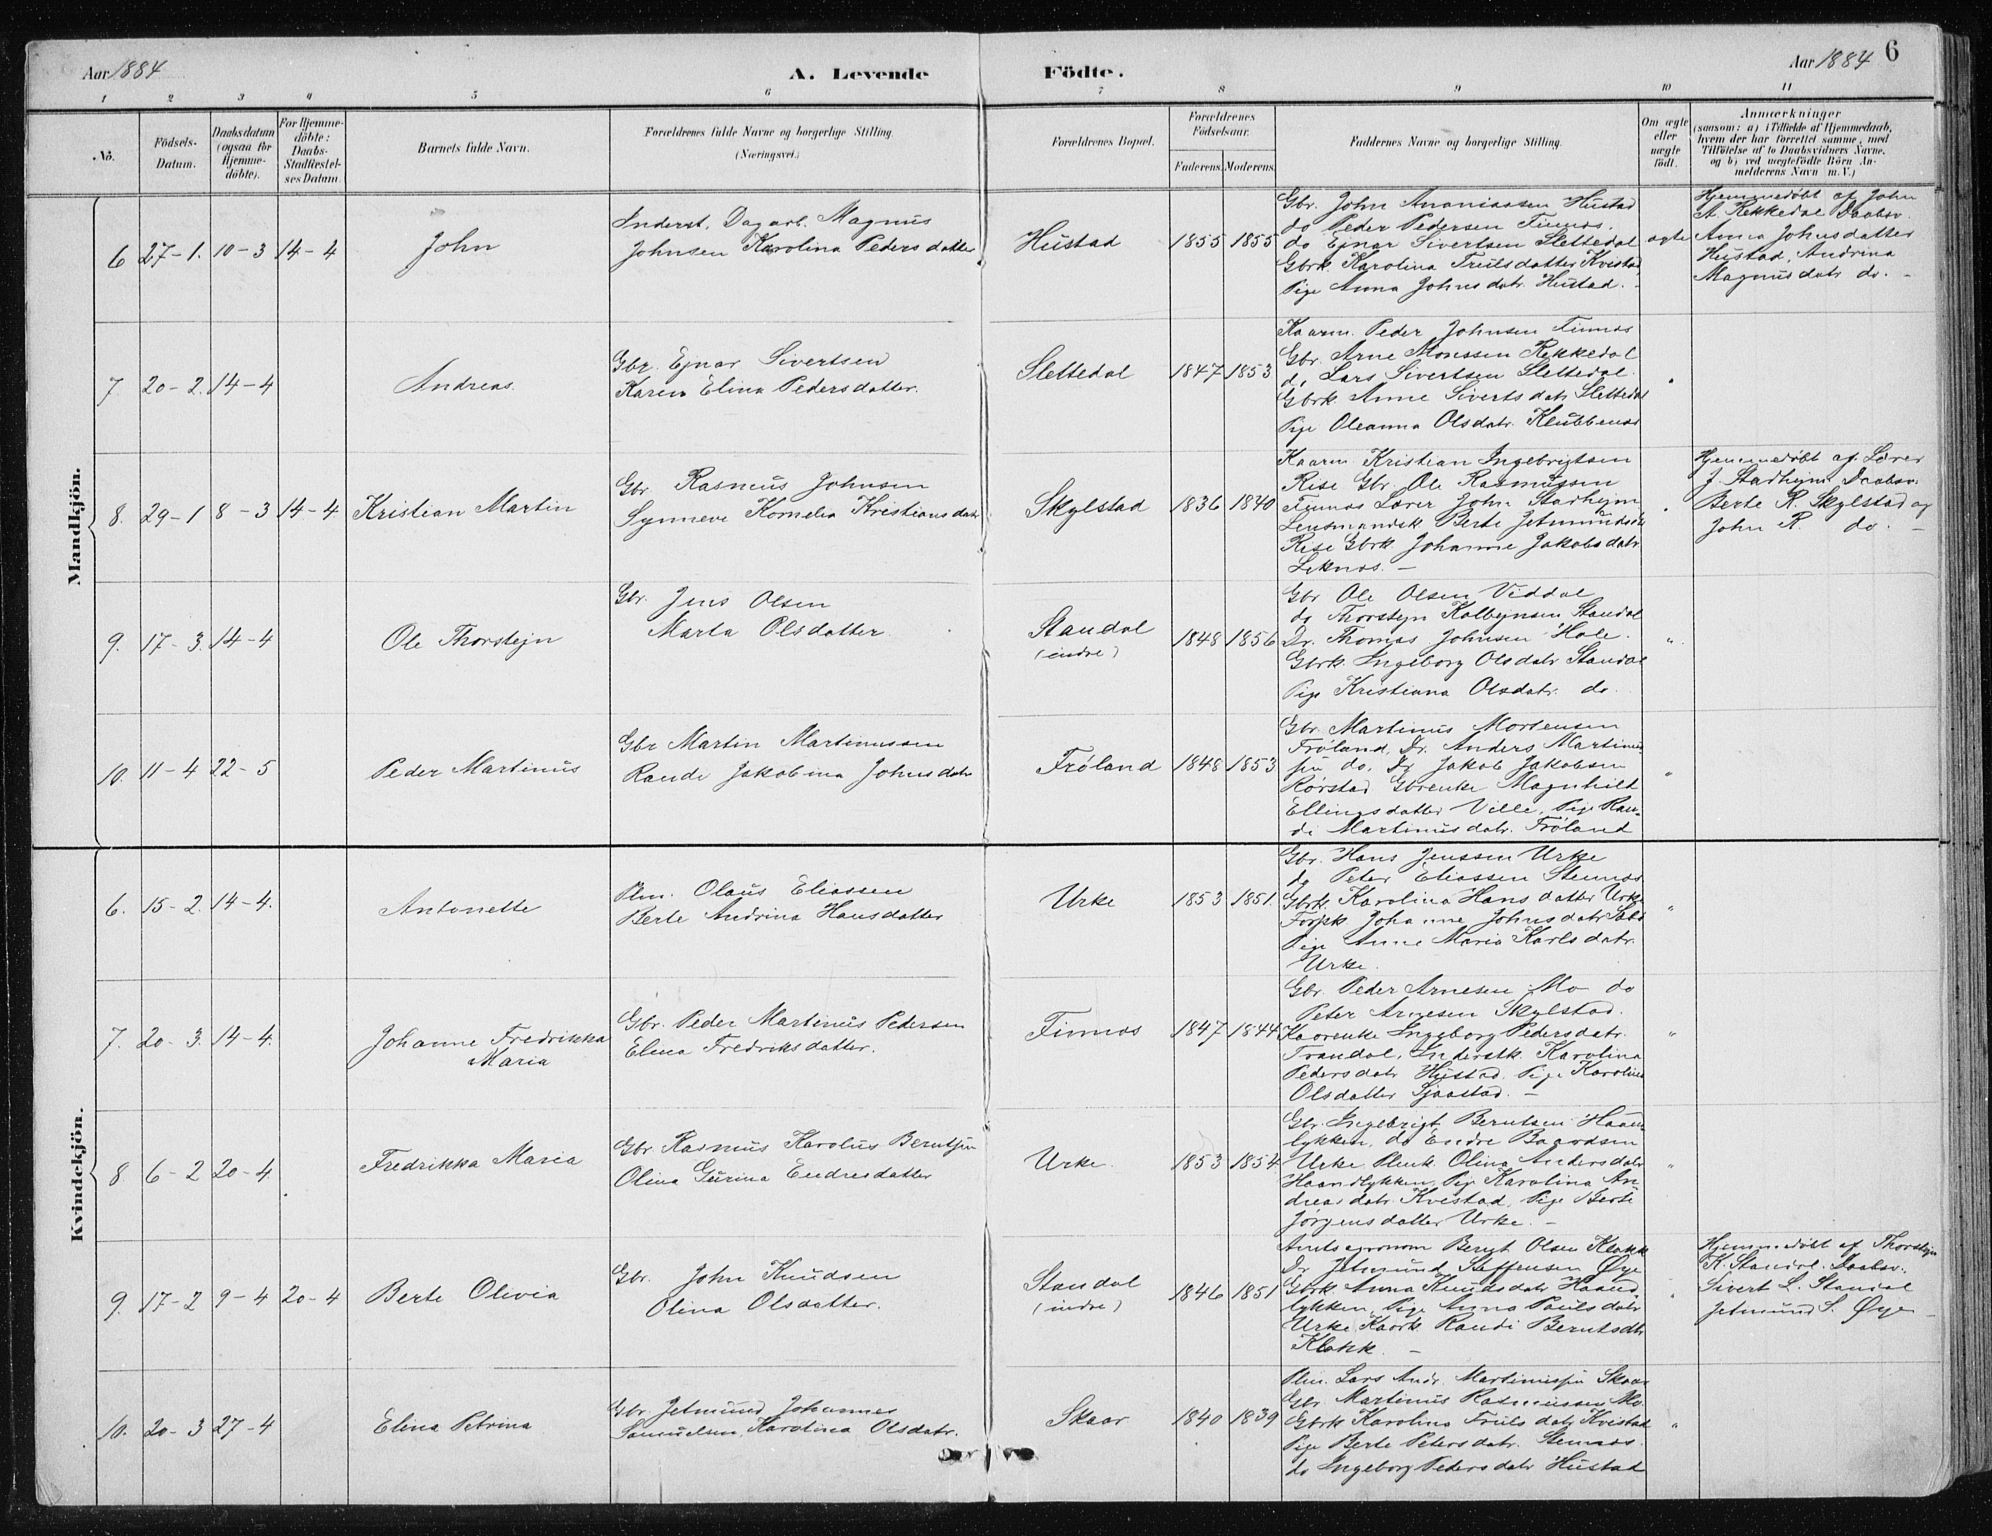 Aar 1884
A. Levende
Födte.
Aar 1884
6
1 2 3 4 5 6 7 8 9 10 11
No.
Födsels-
Datum.
Daabsdatum
(ogsaa for
Hjemme-
döbte).
For Hjemme-
döbte:
Daabs-
Stadfæstel-
ses Datum.
Barnets fulde Navn.
Forældrenes fulde Navne og borgerlige Stilling.
(Næringsvei.)
Forældrenes Bopæl.
Forældrenes
Födselsaar.
Faderens. Moderens.
Faddernes Navne og borgerlige Stilling.
Om ægte
eller
uægte
födt.
Anmærkninger
(saasom: a) i Tilfælde af Hjemmedaab,
hvem der har forrettet samme, med
Tilföielse af to Daabsvidners Navne,
og b) ved uægtefödte Börn An-
melderens Navn m. V.)
Mandkjön.
6 27-1. 10-3 14-4
John
Inderst. Dagarb. Magnus
Johnsen Karolina Pedersdatter
Hustad
1855 1855
Gbr. John Ananiassen Hustad
do Peder Pedersen Finnes.
do Ejnar Sivertsen Slettedal
Gbrk Karolina Trulsdatter Kvistad
Pige Anna Johnsdatr. Hustad. -
ægte
Hjemmedøbt af John
A. Rekkedal Daabsv.
Anna Johnsdatter
Hustad, Andrina
Magnusdatr do. -
7. 20-2. 14-4
Andreas.
Gbr. Ejnar Sivertsen
Karen Elina Pedersdatter.
Slettedal
1847 1853
Kaarm. Peder Johnsen Finnes
Gbr. Arne Monssen Rekkedal
d. Lars Sivertsen Slettedal.
Gbrk. Anne Sivertsdatr Slettedal
Pige Oleanna Olsdatr. Klubbenes
8. 29-1 8-3 14-4
Kristian Martin
Gbr. Rasmus Johnsen
Synneve Kornelia Kristiansdatr
Skylstad
1836 1840
Kaarm Kristian Ingebrigtsen
Rise Gbr. Ole Rasmussen
Finnes Lærer John Stadheim
Lensmandsk Berte Jetmundsdtr
Rise Gbrk. Johanne Jakobsdatr
Leknes. -
Hjemmedøbt af Lærer
J. Stadhejm Daabsv.
Berte R. Skylstad og
John R. do. -
9. 17-3. 14-4
Ole Thorstejn
Gbr. Jens Olsen
Marta Olsdatter
Standal
(indre)
1848 1856
Gbr Ole Olsen Viddal
do Thorstejn Kolbejnsen Standal
Dr. Thomas Johnsen Hole.
Gbrk. Ingeborg Olsdatr Standal
Pige Kristiana Olsdatr. do.
"
10. 11-4 22-5
Peder Martinus
Gbr Martin Martinussen
Rande Jakobina Johnsdatr
Frøland
1848 1853
Gbr. Martinus Mortensen
Frøland, Dr. Anders Martinus
sen do, Dr Jakob Jakobsen
Rørstad Gbrenke Magnhilt
Ellingsdatter Ville, Pige Ran-
di Martinusdatr. Frøland
"
Kvindekjön.
6. 15-2. 14-4.
Antonette
Plm. Olaus Eliassen
Berte Andrina Hansdatter
Urke
1853 1851.
Gbr. Hans Jenssen Urke
do Peter Eliassen Stennes
Gbrk. Karolina Hansdatter Urke
Johanne Johnsdatr Sæbø
Pige Anne Maria Karlsdatr.
Urke.
"
7. 20-3. 14-4.
Johanne Fredrikka
Maria
Gbr. Peder Martinus Pedersen
Elina Fredriksdatter.
Finnes
1847 1844
Gbr. Peder Arnesen Mo do
Peter Arnesen Skylstad.
Kaarenke Ingeborg Pedersdatr.
Trandal, Inderstk. Karolina
Pedersdatr Hustad. Pige Karolina
Olsdatter Sjaastad. -
"
8. 6-2 20-4.
Fredrikka Maria
Gbr Rasmus Karolus Berntsen
Olina Gurina Endresdatter
Urke.
1853 1854.
Gbr. Ingebrigt Berntsen Haand
lykken, do Endre Baardsen
Urke Plmk. Olina Andersdatr
Haandlykken, Pige Karolina An
dreasdatr. Kvistad, Pige Berte
Jørgensdatter Urke. -
"
9. 17-2 9-4 20-4
Berte Olivia
Gbr. John Knudsen
Olina Olsdatter.
Standal
(indre)
1846 1851
Amtsagronom Bernt Olsen Klokk
Dr. Jetmund Steffensen Øye
Gbrk. Anna Knudsdatr Haand
lykken, Pige Anna Paulsdatr
Urke. Kaark. Randi Berntsdtr
Klokk. -
Hjemmedøbt af Thorstejn
K. Standal. Daabsv.
Sivert L. Standal
Jetmund S. Øye -
10. 20-3 27-4
Elina Petrina
Gbr. Jetmund Johannes
Samuelsen, Karolina Olsdatr.
Skaar
1840 1839
Plm. Lars Andr. Martinussen Skaar
Gbr. Martinus Rasmussen Mo.
Gbrk Karolina Trulsdatr Kvistad
Pige Berte Petersdatr. Stennes.
do Ingeborg Pedersdatr Hustad
"